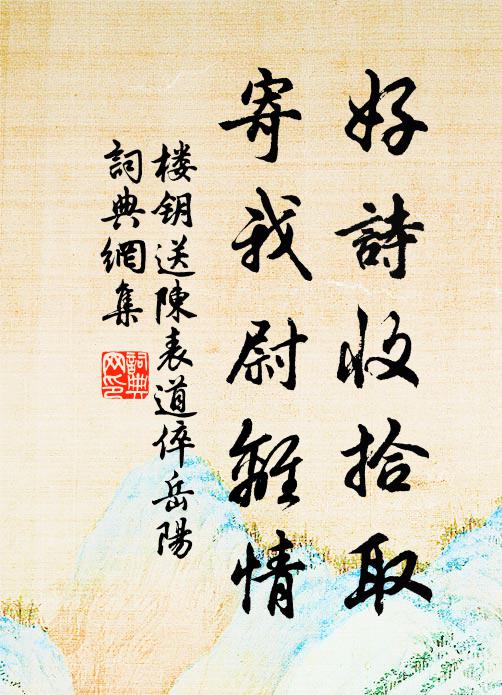 好詩收拾取
寄我尉離情
楼钥送陳表道倅岳陽
詞典網集
詞典网印